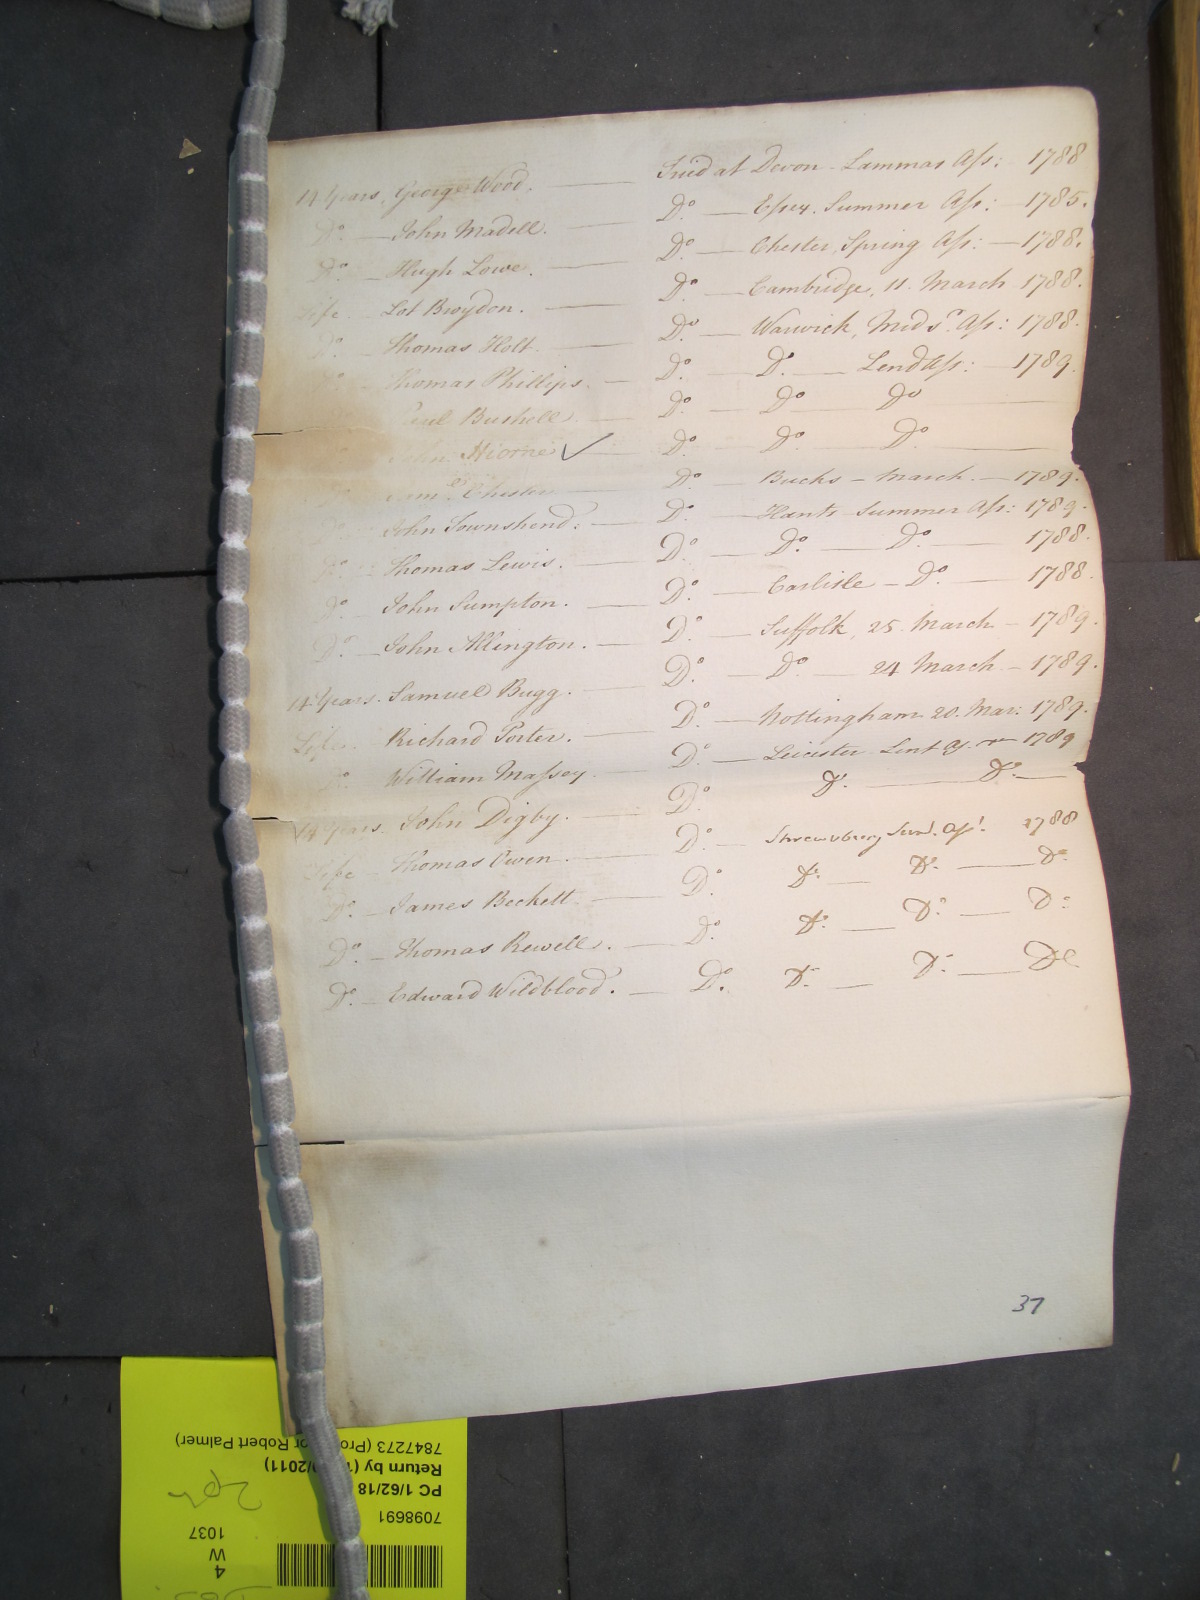 14 Years. George Wood. — Tried at Devon Lammas Ass: 1788
Do. — John Madell. — Do — Essex. Summer Ass: — 1785.
Do — Hugh Lowe. — Do — Chester, Spring Ass: — 1788.
Life Lot Broydon. — Do — Cambridge, 11. March 1788.
Do. Thomas Holt. — Do — Warwick, Mids.r Ass: 1788.
Thomas Phillips. — Do — Do. — Lend Ass: — 1789.
Bushell — Do. — Do — Do —
John Hiorne ✓ Do — Do — Do. —
Chester — Do. — Bucks — March. — 1789.
John Townshend. — Do. — Hants Summer Ass: 1789.
Thomas Lewis. — Do. — Do. — Do. — 1788.
Do. John Sumpton. — Do. — Carlisle — Do. — 1788.
Do. — John Allington. — Do. — Suffolk, 25. March — 1789.
14 Years. Samuel Bugg. — Do. — Do — 24 March — 1789.
Life. Richard Porter. — Do. — Nottingham 20. Mar: 1789.
Do. William Massey. — Do. — Leicester Lent 1789
14 Years. John Digby. — Do. Do. — Do. —
Life Thomas Owen. — Do. — Shrewsbury Sum.r Ass. 1788
Do. — James Beckett — Do. Do. — Do. — Do
Do. — Thomas Rewell. — Do. Do. — Do. — Do.
Do. — Edward Wildblood. — Do. Do. — Do. — Do
37
7847273 (Pro or Robert Palmer)
Return by ( /2011)
PC 1/62/18
7098691
1037
W
4